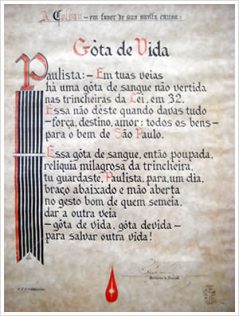 A Colsan — em favor de sua santa causa:
Gôta de Vida
Paulista: — Em tuas veias
há uma gôta de sangue não vertida
nas trincheiras da Lei, em 32.
Essa não deste quando davas tudo
— força, destino, amor: todos os bens —
para o bem de São Paulo.
Essa gôta de sangue, então poupada,
relíquia milagrosa da trincheira,
tu guardaste, Paulista, para, um dia,
braço abaixado e mão aberta
no gesto bom de quem semeia,
dar a outra veia
— gôta de vida, gôta devida —
para salvar outra vida!